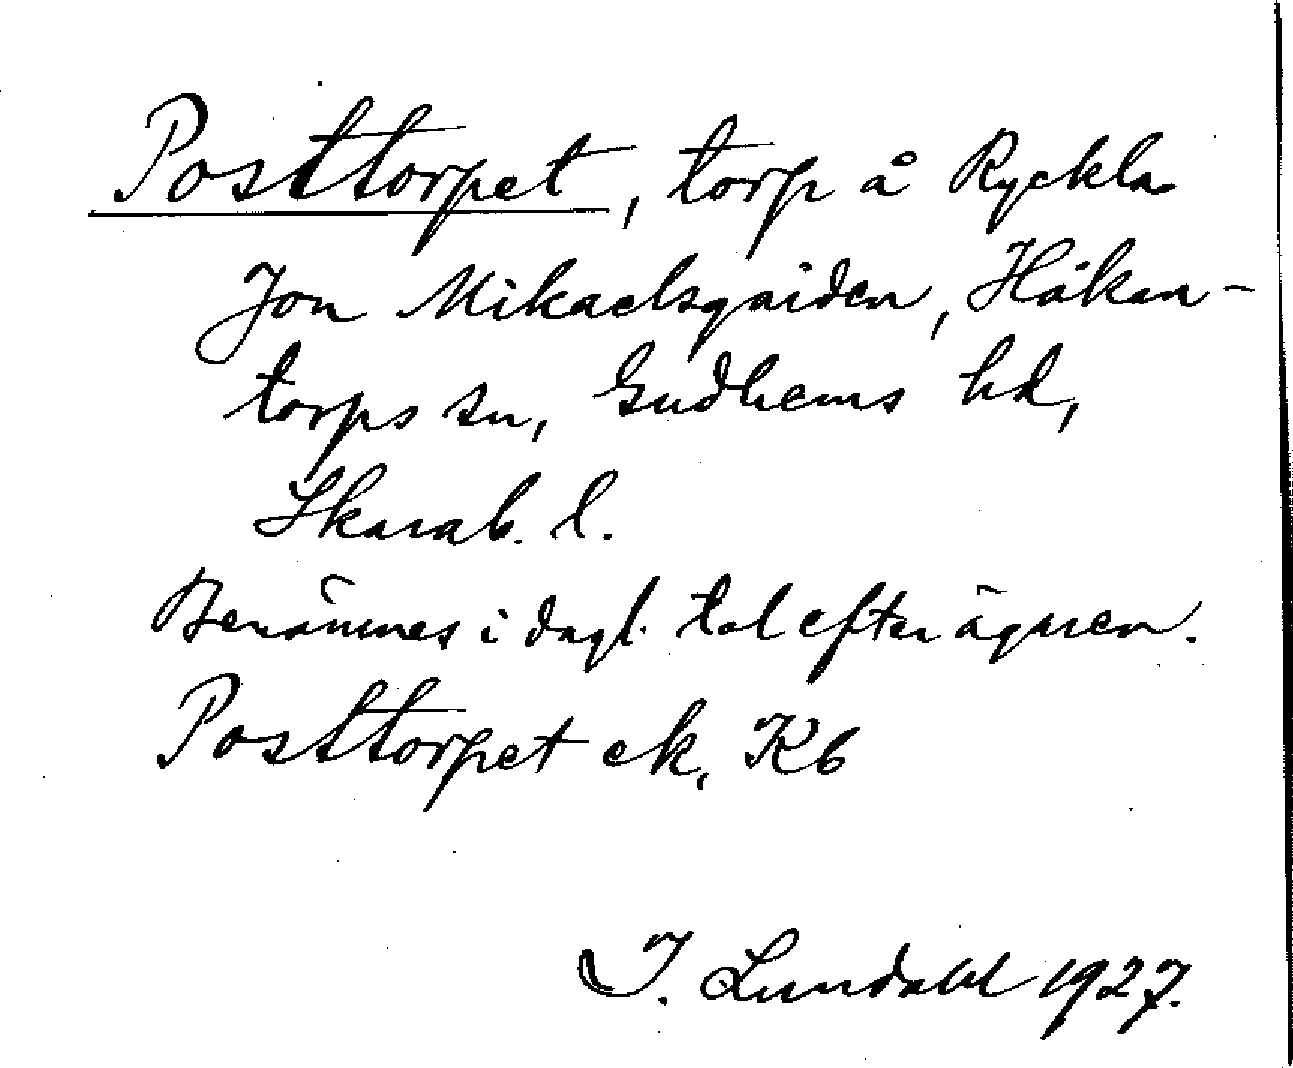 Posttorpet, torp å Ryckla
Jon Mikaelsgården, Håkan-
torps sn, Gudhems hd,
Skarab. l.
Benämnes i dagl. tal efter ägaren.
Posttorpet ek, Kb
I. Lundahl 1927.